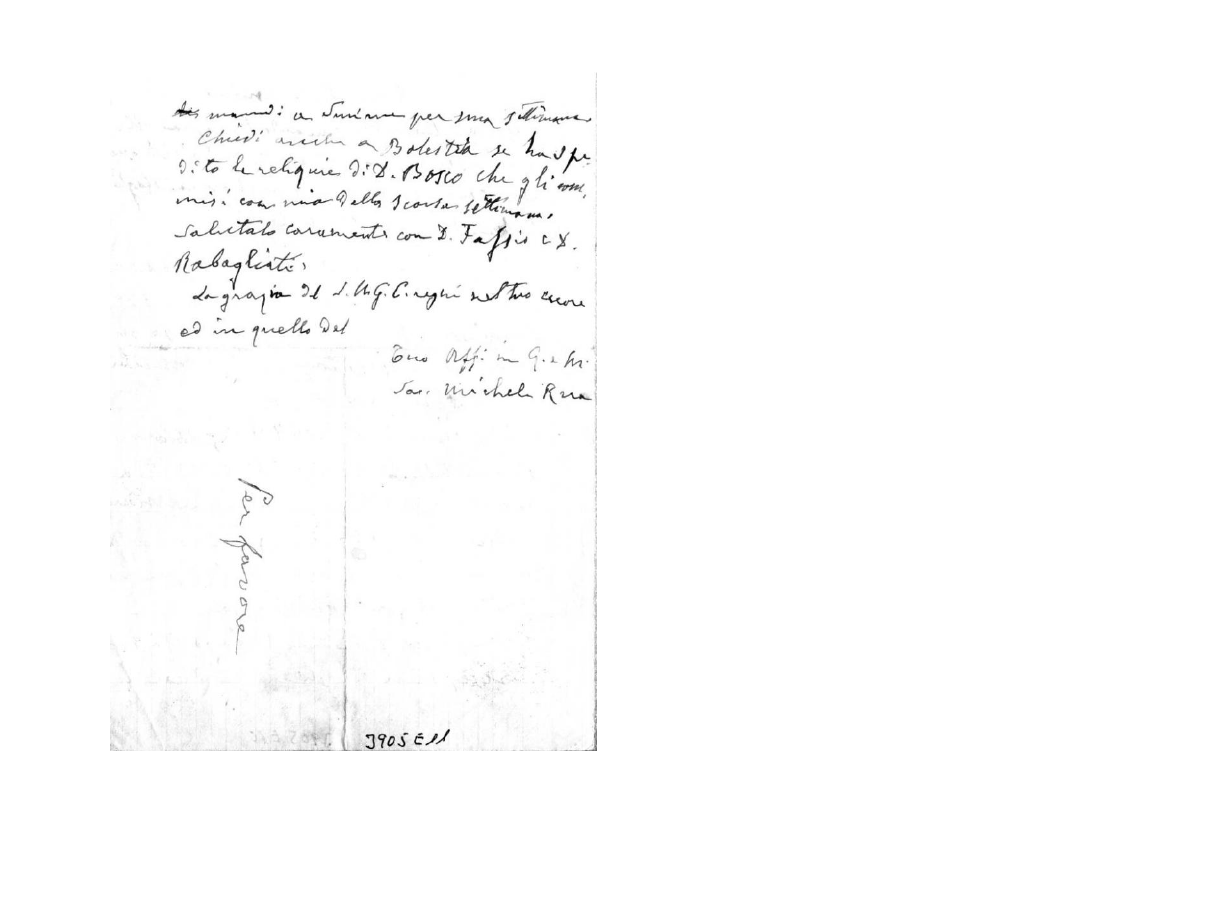 mandi a per una settimana
Chiedi anche a Balestra se ha spe-
dito le reliquie di D. Bosco che gli com,
misi con mia della scorsa settimana.
Salutalo caramente con D. Fassio e D.
Rabagliati.
La grazia del S. N. G. C. regni nel tuo cuore
ed in quello del
Tuo Aff. in G. e M.
Sac. Michele Rua
Per favore
3905 E11